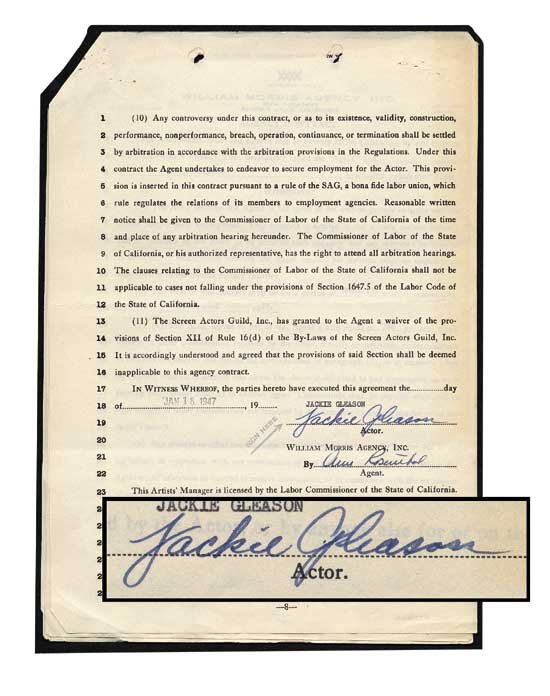 WILLIAM MORRIS AGENCY, INC.
1 (10) Any controversy under this contract, or as to its existence, validity, construction,
2 performance, nonperformance, breach, operation, continuance, or termination shall be settled
3 by arbitration in accordance with the arbitration provisions in the Regulations. Under this
4 contract the Agent undertakes to endeavor to secure employment for the Actor. This provi-
5 sion is inserted in this contract pursuant to a rule of the SAG, a bona fide labor union, which
6 rule regulates the relations of its members to employment agencies. Reasonable written
7 notice shall be given to the Commissioner of Labor of the State of California of the time
8 and place of any arbitration hearing hereunder. The Commissioner of Labor of the State
9 of California, or his authorized representative, has the right to attend all arbitration hearings.
10 The clauses relating to the Commissioner of Labor of the State of California shall not be
11 applicable to cases not falling under the provisions of Section 1647.5 of the Labor Code of
12 the State of California.
13 (11) The Screen Actors Guild, Inc., has granted to the Agent a waiver of the pro-
14 visions of Section XII of Rule 16(d) of the By-Laws of the Screen Actors Guild, Inc.
15 It is accordingly understood and agreed that the provisions of said Section shall be deemed
16 inapplicable to this agency contract.
17 IN WITNESS WHEREOF, the parties hereto have executed this agreement the..............day
18 of JAN 16 1947, 19...... JACKIE GLEASON
19 Jackie Gleason
SIGN HERE
Actor.
20
WILLIAM MORRIS AGENCY, INC.
21 By
22 Agent.
23 This Artists' Manager is licensed by the Labor Commissioner of the State of California.
JACKIE GLEASON
Jackie Gleason
Actor.
—8—